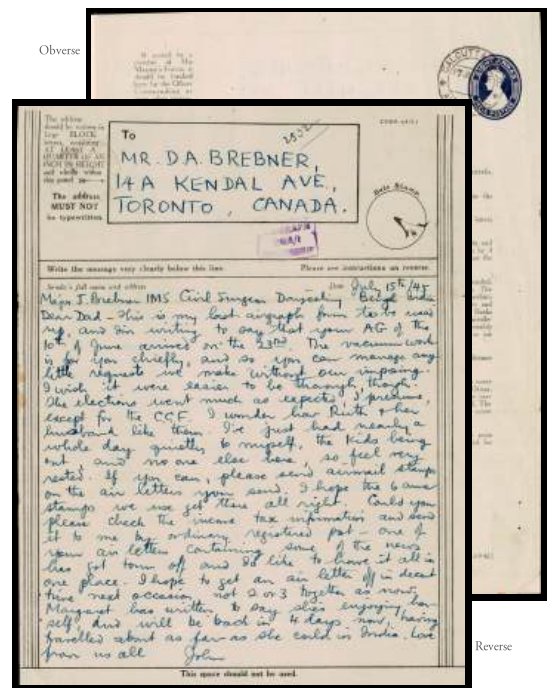 Obverse
CALCUTTA
The address
should be written in
large BLOCK
letters
AT LEAST A
QUARTER OF AN
INCH IN HEIGHT
and wholly within
this panel
The address
MUST NOT
be typewritten.
To
MR. D.A. BREBNER,
14A KENDAL AVE,
TORONTO, CANADA.
Date Stamp
Write the message very clearly below this line.
Please see instructions on reverse.
Sender's full name and address
Date July 15th/45
Major J. Brebner IMS Civil Surgeon Darjeeling Bengal India
Dear Dad - This is my last airgraph form to be used
up, and I'm writing to say that your AG of the
10th of June arrived on the 23rd. The vacuum work
is for you chiefly, and so you can manage any
little requests we make without our imposing.
I wish it were easier to be thorough, though.
The elections went much as expected, I presume,
except for the CCF. I wonder how Ruth & her
husband like them. I've just had nearly a
whole day quietly to myself, the kids being
out, and no one else here, so feel very
rested. If you can, please send airmail stamps
on the air letters you send. I hope the 6 anna
stamps we use get there all right. Could you
please check the income tax information and send
it to me by ordinary registered post - one of
your air letters containing some of the news
has got torn off and I'd like to have it all in
one place. I hope to get an air letter off in decent
time next occasion, not 2 or 3 together as now.
Margaret has written to say she's enjoying her-
self, and will be back in 4 days now, having
travelled about as far as she could in India. Love
from us all John
This space should not be used.
Reverse